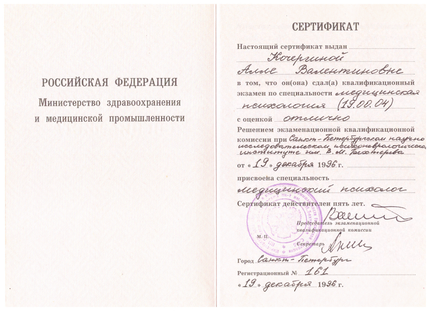 РОССИЙСКАЯ ФЕДЕРАЦИЯ
Министерство здравоохранения
и медицинской промышленности
СЕРТИФИКАТ
Настоящий сертификат выдан
Кочергиной
Алле Валентиновне
в том, что он(она) сдал(а) квалификационный
экзамен по специальности медицинская
психология (19.00.04)
с оценкой отлично
Решением экзаменационной квалификационной
комиссии при Санкт-Петербургском научно-
исследовательском психоневрологическом
институте им. В. М. Бехтерева
от «19» декабря 1996г.
присвоена специальность
медицинский психолог
Сертификат действителен пять лет.
Председатель экзаменационной
квалификационной комиссии
М. П.
Секретарь
Город Санкт-Петербург
Регистрационный № 161
«19» декабря 1996 г.